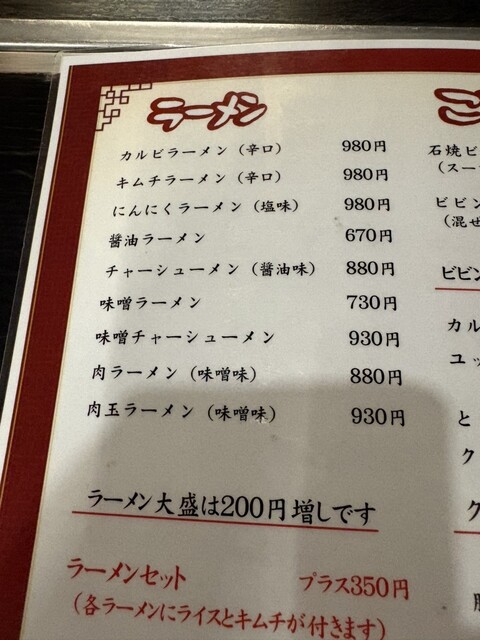 ラーメン
カルビラーメン（辛口） 980円
キムチラーメン（辛口） 980円
にんにくラーメン（塩味） 980円
醤油ラーメン 670円
チャーシューメン（醤油味） 880円
味噌ラーメン 730円
味噌チャーシューメン 930円
肉ラーメン（味噌味） 880円
肉玉ラーメン（味噌味） 930円
ラーメン大盛は200円増しです
ラーメンセット プラス350円
（各ラーメンにライスとキムチが付きます）
石焼ビ
（スー
ビビン
（混ぜ
ビビン
カル
ユッ
と
ク
ク